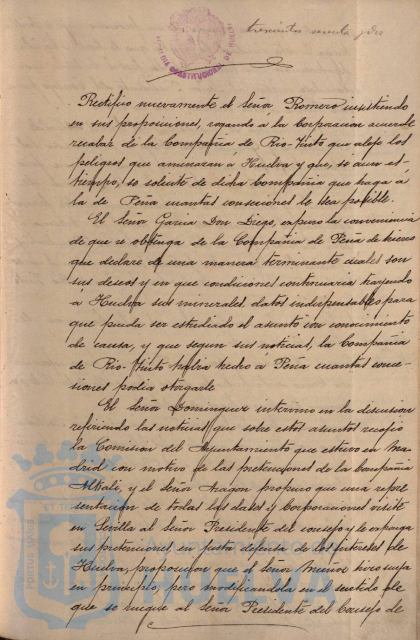 trescientos sesenta y dos
ALCALDIA CONSTITUCIONAL DE HUELVA
Rectificó nuevamente el Señor Romero insistiendo
en sus proposiciones, rogando á la Corporacion acuerde
recabar de la Compañia de Rio-Tinto que aleje los
peligros que amenazan á Huelva y que, si á un es-
tiempo, se solicite de dicha Compañia que haga á
la de Peña cuantas concesiones le sea posible.
El Señor Garcia Don Diego, expuso la conveniencia
de que se obtenga de la Compañia de Peña de hierro
que declare de una manera terminante cuales son
sus deseos y en que condiciones continuaria trayendo
á Huelva sus minerales, datos indispensables para
que pueda ser estudiado el asunto con conocimiento
de causa, y que segun sus noticias, la Compañia
de Rio-Tinto habia hecho á Peña cuantas conce-
siones podia otorgarle
El Señor Dominguez intervino en la discusion
refiriendo las noticias que sobre estos asuntos recojió
la Comision del Ayuntamiento que estuvo en Ma-
drid con motivo de las pretensiones de la Compañia
Alkali, y el Señor Aragon propuso que una repre
sentacion de todas las clases y Corporaciones visite
en Sevilla al Señor Presidente del consejo y le exponga
sus pretensiones en justa defensa de los intereses de
Huelva, proposicion que el Señor Muñoz hizo suya
en principio, pero modificandola en el sentido de
que se ruegue al Señor Presidente del Consejo de
PORTUS MARIS
Ayuntamiento de
HUELVA